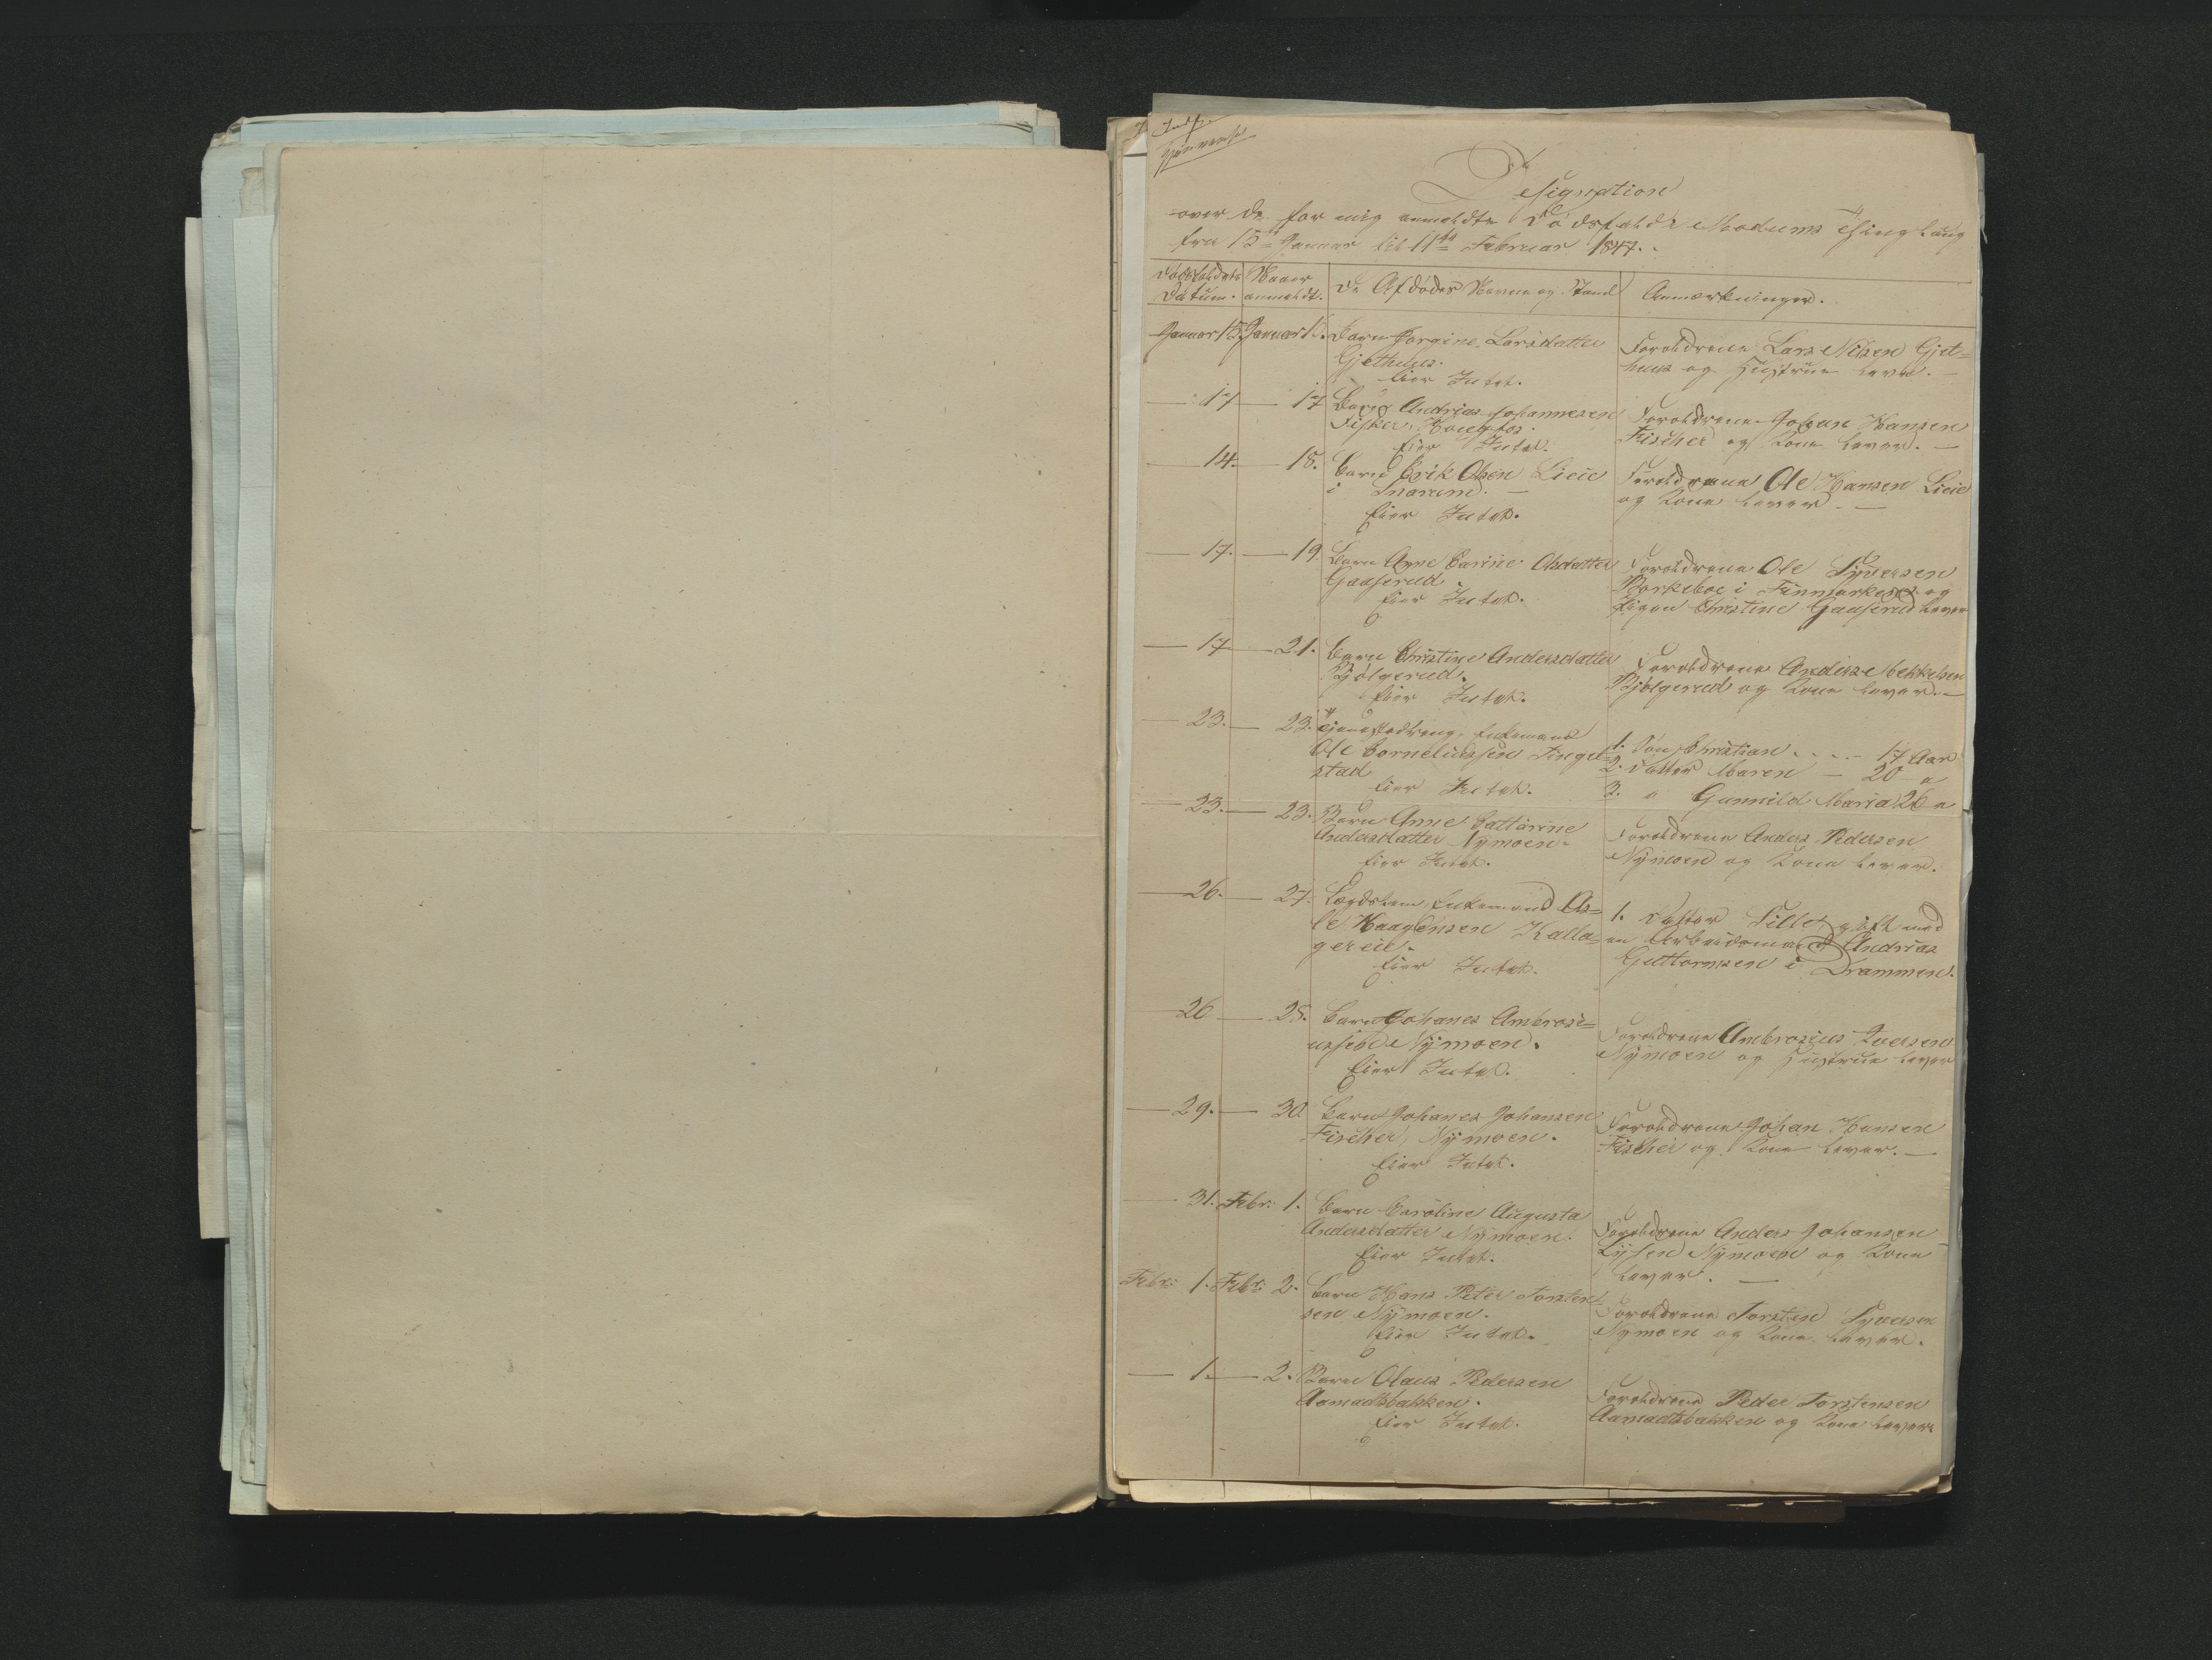 Designation
over de for mig anmeldte Dødsfald i Modums Thinglaug
fra 15de Januar til 11te Februar 1847.
Dødsfaldets Datum.
Naar anmeldt.
De Afdødes Navne og Stand
Anmærkninger.
Januar 15. Januar Barn Jorgine Larsdatter
Gjethuus.
Eier Intet.
Forældrene Lars Nilsen Gjet=
huus og Hustrue lever. —
— 17 — 17 Barn Andrias Johannesen
Fisker,
Eier Intet.
Forældrene Johan Hansen
Fischer og Kone lever. —
— 14. — 18. Barn Erik Olsen Lieie
i Snarum. —
Eier Intet.
Forældrene Ole Hansen Lieie
og Kone lever. —
— 17. — 19. Barn Anne Carine Olsdatter
Gaaserud.
Eier Intet.
Forældrene Ole Syversen
Borkeboe i Finmarken og
Pigen Christine Gaaserud lever
— 17 — 21. Barn Christine Andersdatter
Bjølgerud.
Eier Intet.
Forældrene Anders Mekkelsen
Bjølgerud og Kone lever. —
— 23. — 23. Tjenestedreng, Enkemand
Ole Corneliussen Tingel=
stad
Eier Intet.
1. Søn Christian . . . — 17 Aar
2. Datter Maren — 20 "
3. " Gunnild Maria 26 "
— 23. — 23. Barn Anne Cattarine
Andersdatter Nymoen.
Eier Intet.
Forældrene Anders Pedersen
Nymoen og Kone lever.
— 26. — 27. Lægdslem, Enkemand As=
le Haagensen Kalla=
gereie.
Eier Intet.
1. Datter Sille, gift med
en Arbeidsmand Andrias
Guttormsen i Drammen.
26 — 28. Barn Johanes Ambrosi=
ussen Nymoen.
Eier Intet.
Forældrene Ambrosius Iversen
Nymoen og Hustrue lever
— 29. — 30. Barn Johanes Johansen
Fischer, Nymoen.
Eier Intet.
Forældrene Johan Hansen
Fischer og Kone lever. —
— 31. Febr: 1. Barn Caroline Augusta
Andersdatter Nymoen.
Eier Intet.
Forældrene Anders Johansen
Nymoen og Kone
lever. —
Febr: 1. Febr: 2. Barn Hans Peter Torsten=
sen Nymoen.
Eier Intet.
Forældrene Torsten Syversen
Nymoen og Kone lever.
— 1. — 2. Barn Olaus Pedersen
Aamodtsbakken.
Eier Intet.
Forældrene Peder Torstensen
Aamodtsbakken og Kone lever.